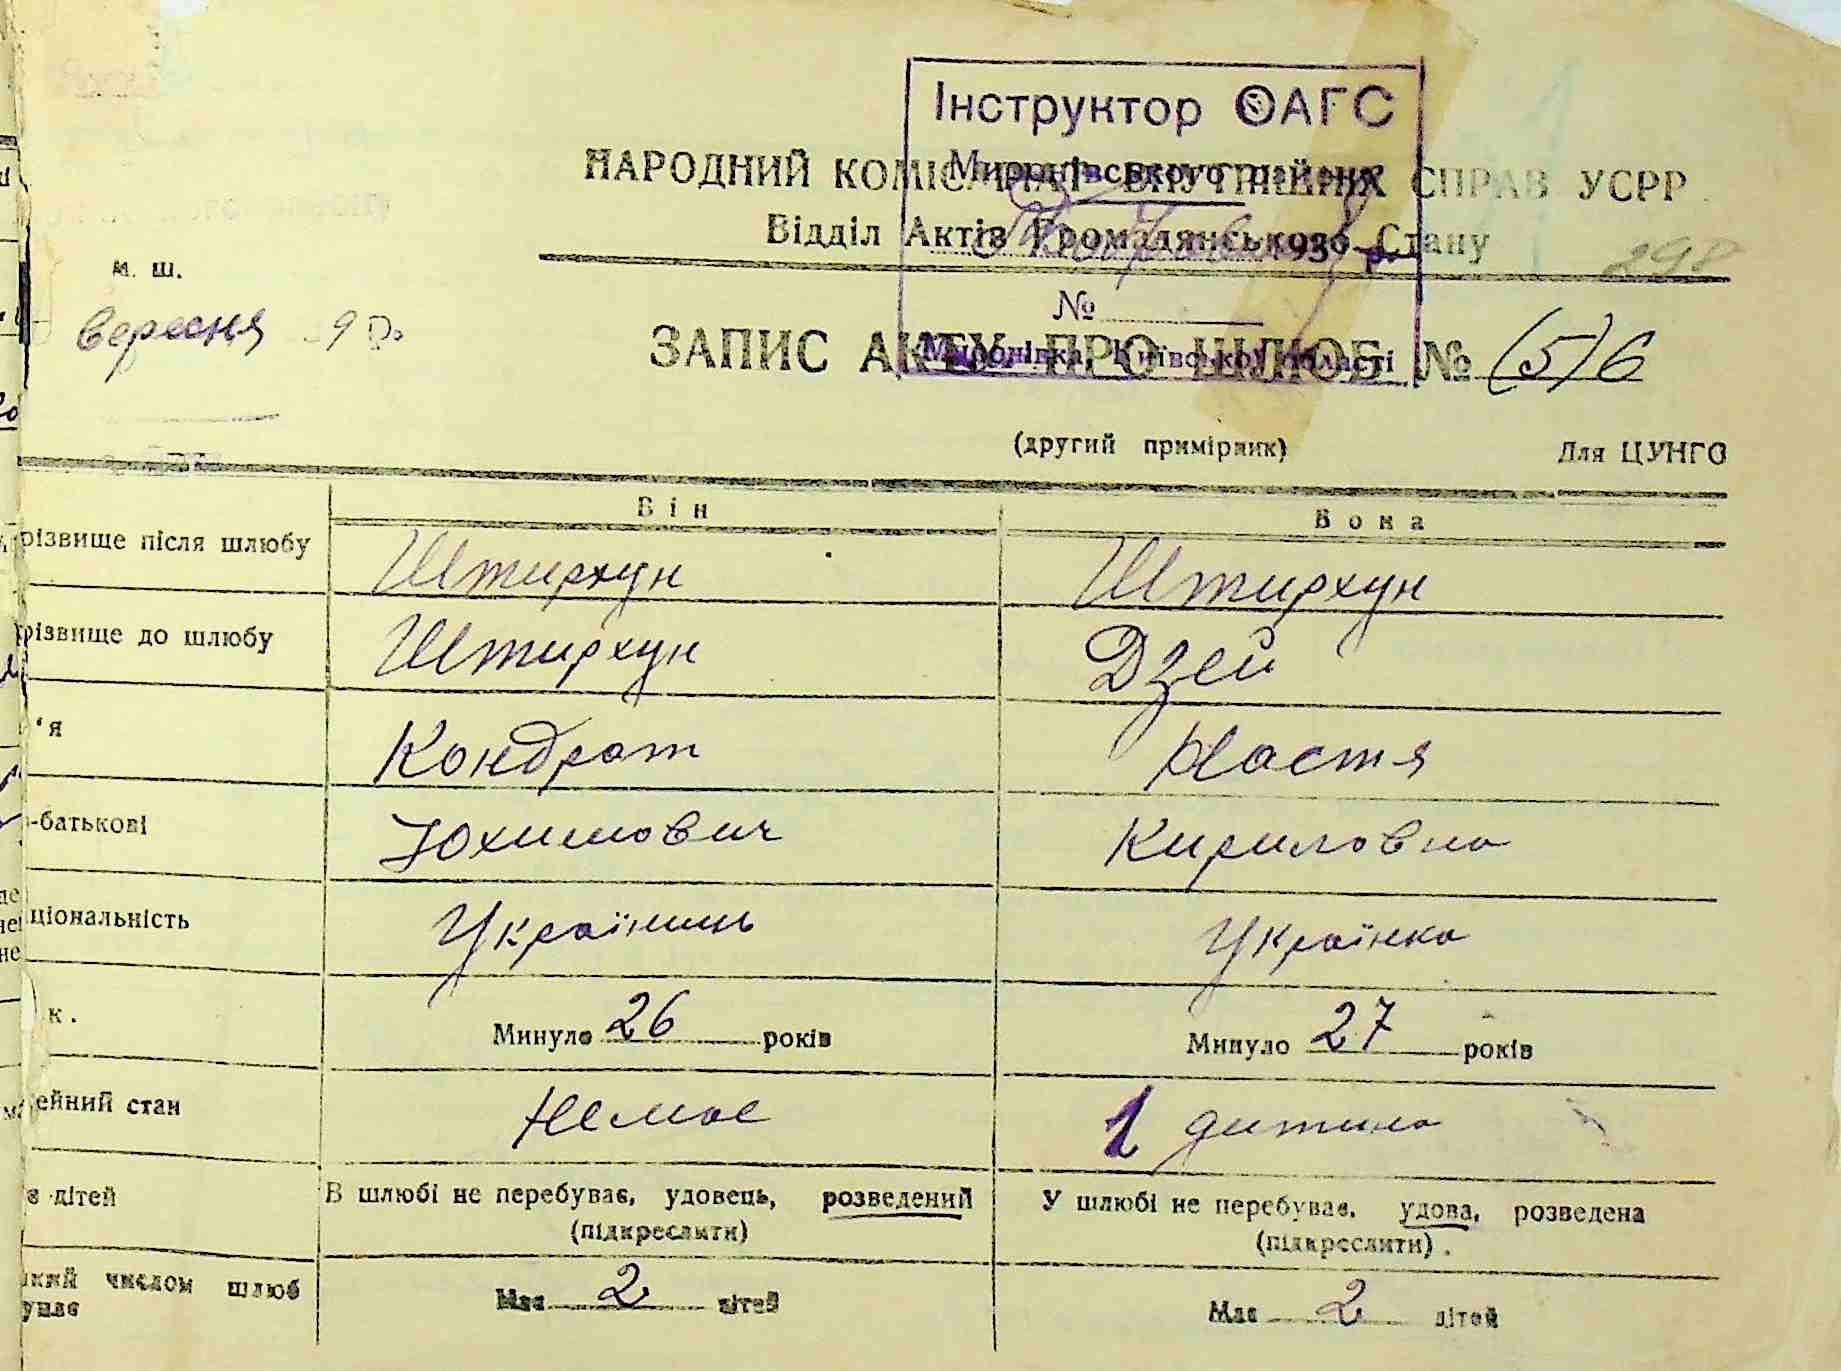 Інструктор ОАГС
Миронівського району
НАРОДНИЙ КОМІСАРІАТ ВНУТРІШНІХ СПРАВ УСРР
Відділ Актів Громадянського Стану
193 р.
298
м. ш.
№
вересня 9
ЗАПИС АКТУ ПРО ШЛЮБ № (5)6
Миронівка, Київської області
(другий примірник) Для ЦУНГО
Він Вона
різвище після шлюбу Штирхун Штирхун
різвище до шлюбу Штирхун Дзей
'я Кондрат Настя
-батькові Юхимович Кириловна
ціональність Українець Українка
к. Минуло 26 років Минуло 27 років
ейний стан Немає 1 дитина
є дітей В шлюбі не перебуває, удовець, розведений У шлюбі не перебуває, удова, розведена
(підкреслити) (підкреслити).
який числом шлюб Має 2 дітей Має 2 дітей